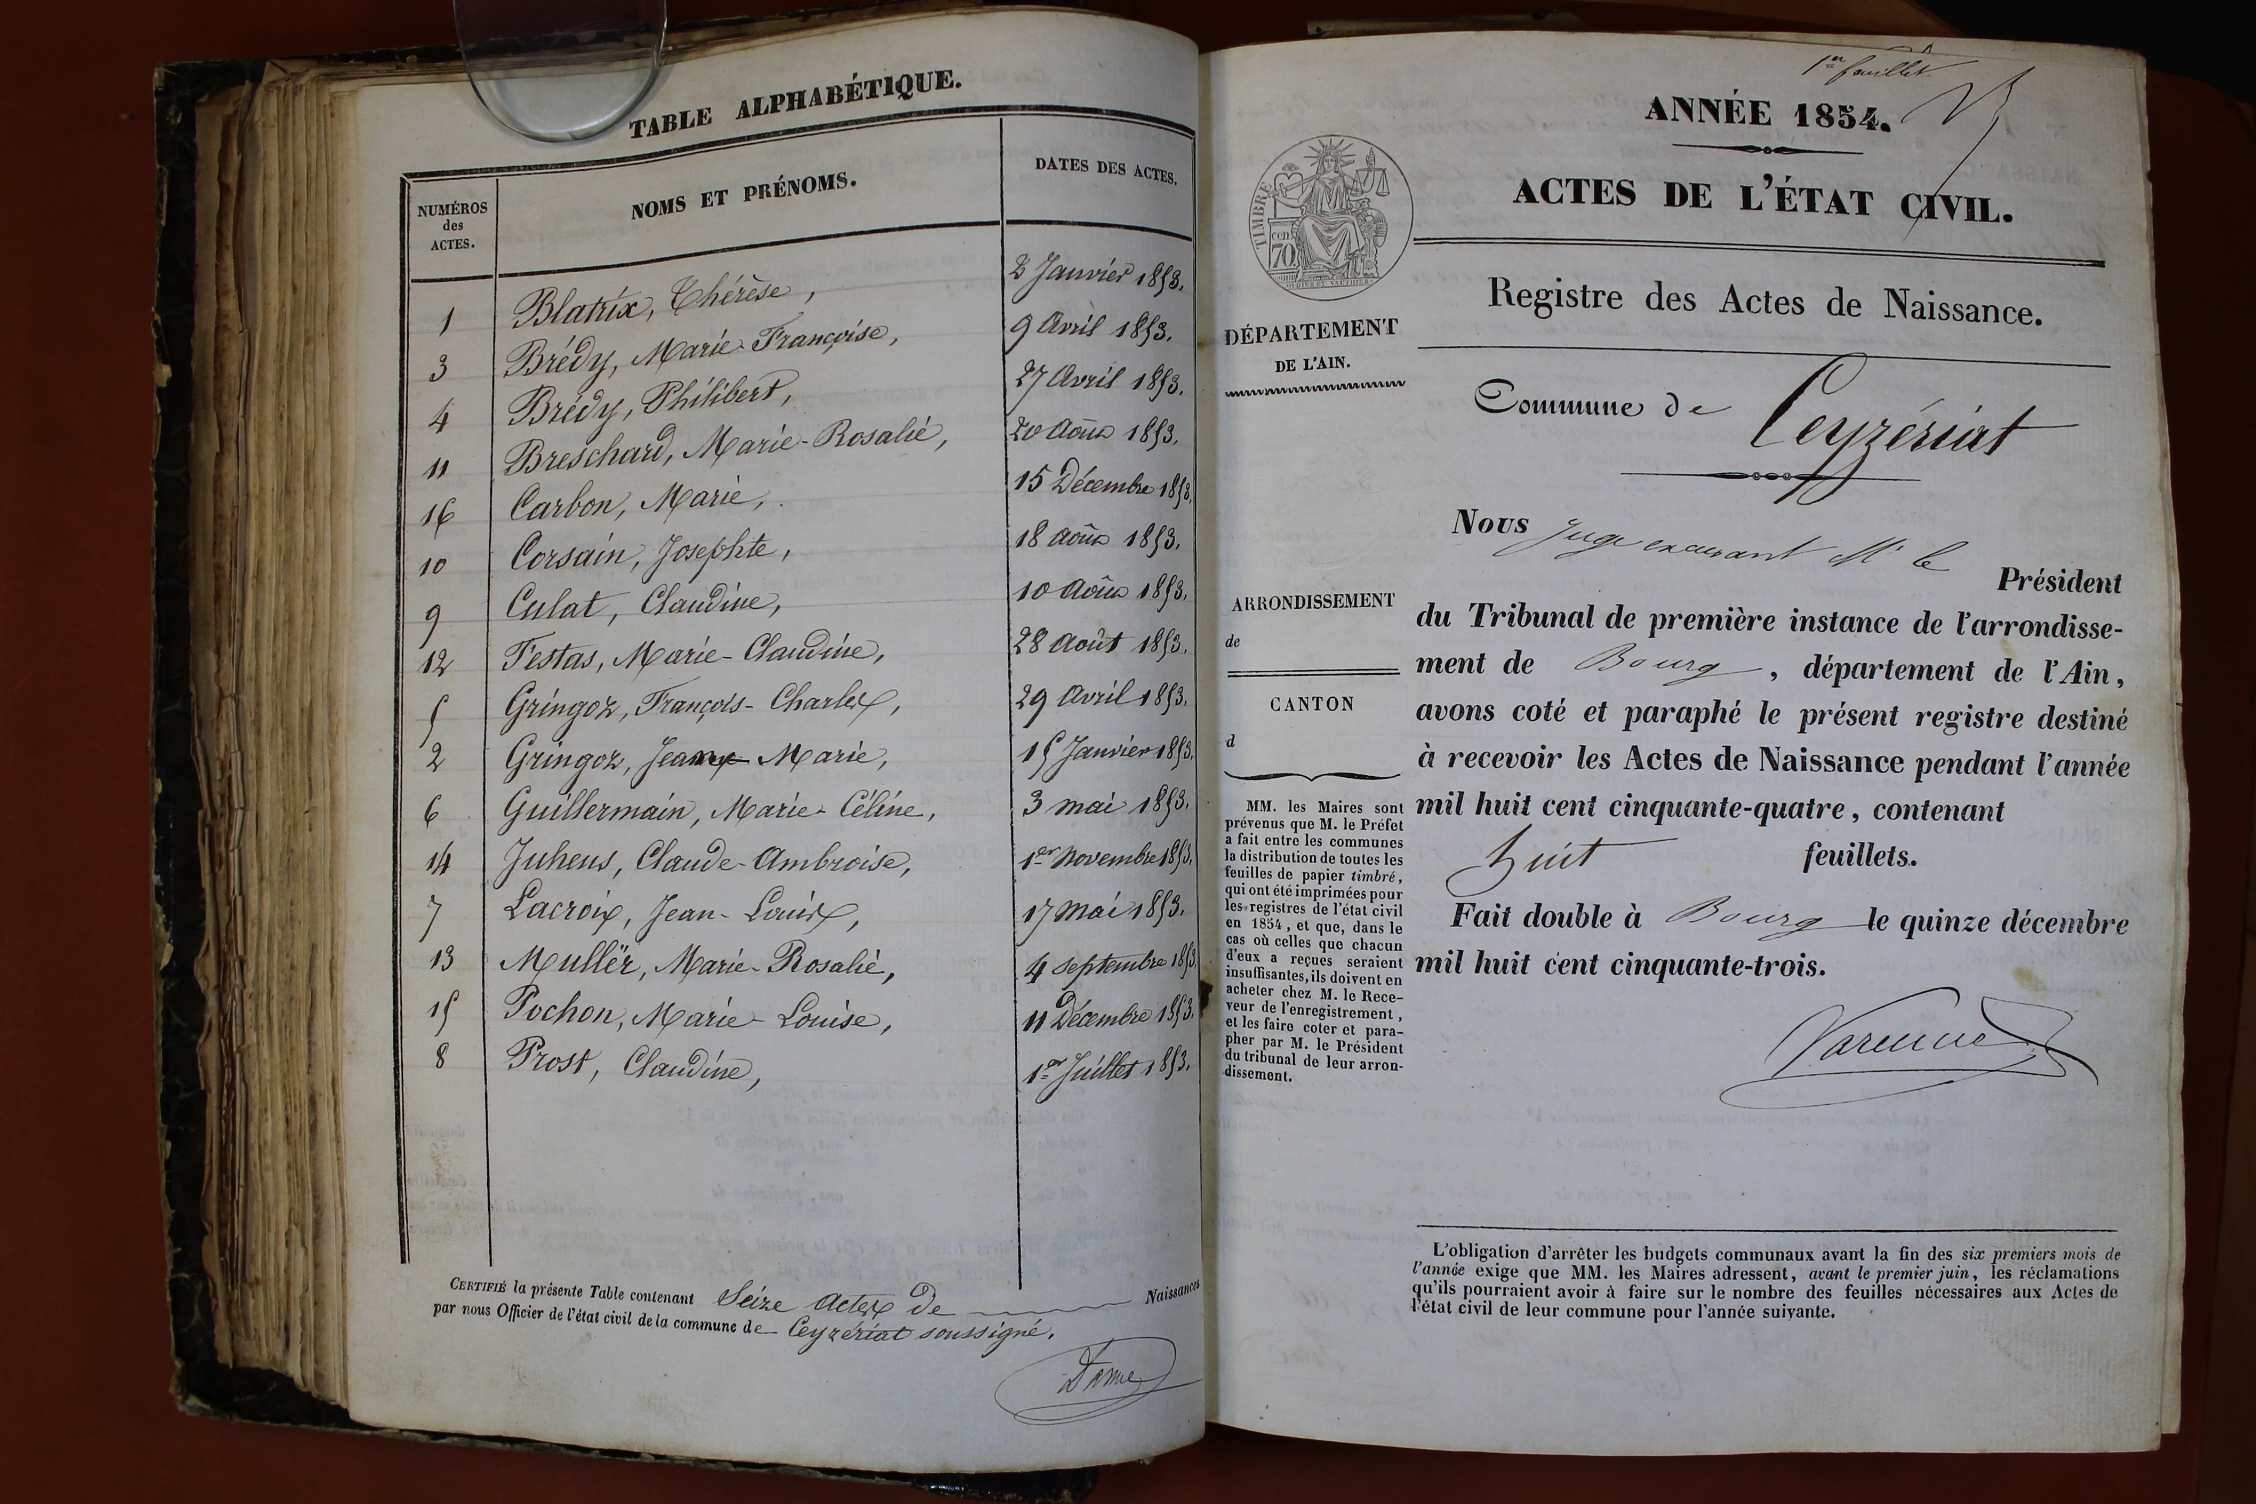 TABLE ALPHABÉTIQUE.
NUMÉROS
des
ACTES.
NOMS ET PRÉNOMS.
DATES DES ACTES.
1 Blatrix, Thérèse, 2 Janvier 1853.
3 Brédy, Marie-Françoise, 9 Avril 1853.
4 Brédy, Philibert, 27 Avril 1853.
11 Breschard, Marie-Rosalie, 20 Août 1853.
16 Carbon, Marie, 15 Décembre 1853.
10 Corsain, Josephte, 18 Août 1853.
9 Culat, Claudine, 10 Août 1853.
12 Festas, Marie-Claudine, 28 Août 1853.
5 Gringoz, François-Charles, 29 Avril 1853.
2 Gringoz, Jeanne Marie, 15 Janvier 1853.
6 Guillermain, Marie-Céline, 3 mai 1853.
14 Juhens, Claude-Ambroise, 1er Novembre 1853.
7 Lacroix, Jean-Louis, 17 Mai 1853.
13 Mullër, Marie-Rosalie, 4 Septembre 1853.
15 Pochon, Marie-Louise, 11 Décembre 1853.
8 Prost, Claudine, 1er Juillet 1853.
CERTIFIÉ la présente Table contenant Seize Actes de Naissances
par nous Officier de l'état civil de la commune de Ceyzériat soussigné.
1er feuillet
ANNÉE 1854.
ACTES DE L'ÉTAT CIVIL.
TIMBRE
cen
70
Registre des Actes de Naissance.
DÉPARTEMENT
DE L'AIN.
Commune de Ceyzériat
ARRONDISSEMENT
de
CANTON
d
MM. les Maires sont
prévenus que M. le Préfet
a fait entre les communes
la distribution de toutes les
feuilles de papier timbré,
qui ont été imprimées pour
les registres de l'état civil
en 1854, et que, dans le
cas où celles que chacun
d'eux a reçues seraient
insuffisantes, ils doivent en
acheter chez M. le Rece-
veur de l'enregistrement,
et les faire coter et para-
pher par M. le Président
du tribunal de leur arron-
dissement.
Nous Juge excusant Mr le
Président
du Tribunal de première instance de l'arrondisse-
ment de Bourg, département de l'Ain,
avons coté et paraphé le présent registre destiné
à recevoir les Actes de Naissance pendant l'année
mil huit cent cinquante-quatre, contenant
huit feuillets.
Fait double à Bourg le quinze décembre
mil huit cent cinquante-trois.
Varenne
L'obligation d'arrêter les budgets communaux avant la fin des six premiers mois de
l'année exige que MM. les Maires adressent, avant le premier juin, les réclamations
qu'ils pourraient avoir à faire sur le nombre des feuilles nécessaires aux Actes de
l'état civil de leur commune pour l'année suivante.